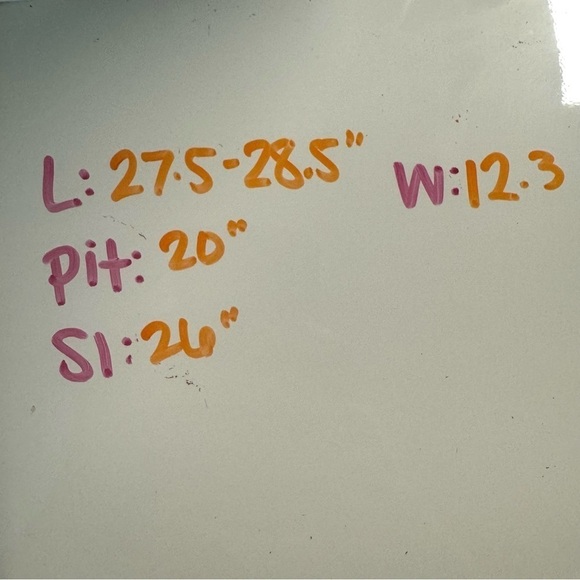 L: 27.5-28.5" W:12.3
Pit: 20"
Sl: 26"